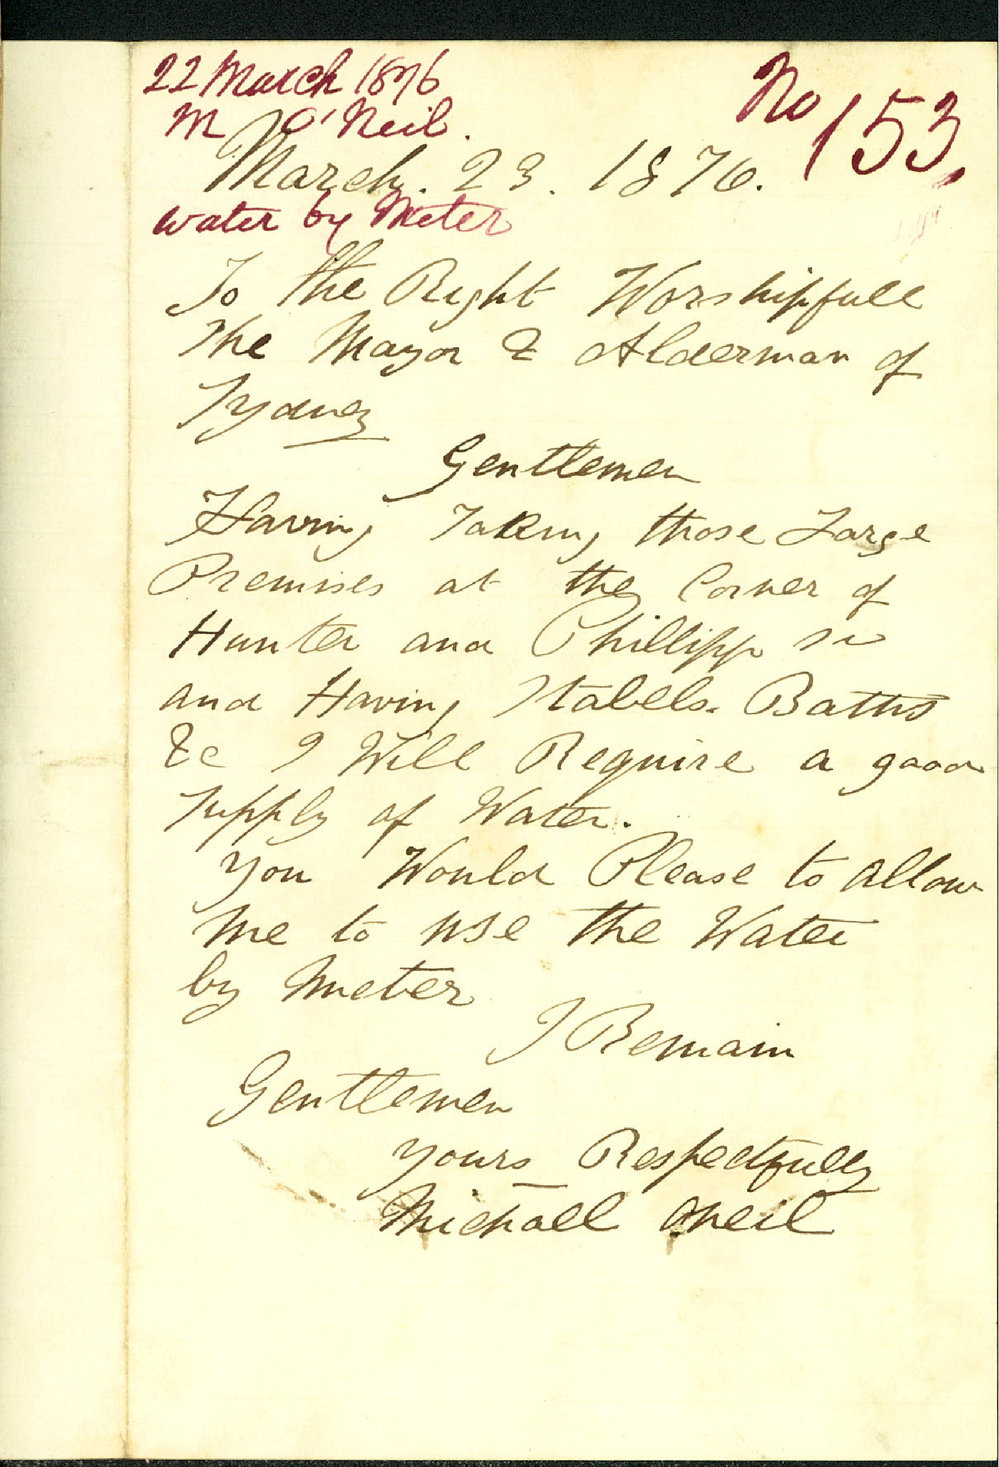 22 March 1876
No 153.
M O'Neil.
March. 23. 1876.
water by Meter
To the Right Worshipfull
The Mayor & Alderman of
Sydney
Gentlemen
Having Taking those Large
Premises at the Corner of
Hunter and Phillipp St
and Having Stabels. Baths
&c I Will Require a good
Supply of Water.
You Would Please to allow
Me to use the Water
by Meter
I Remain
Gentlemen
yours Respectfully
Michall Oneil